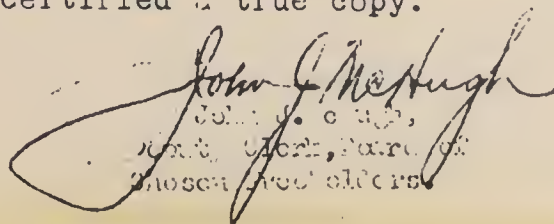 certified a true copy.
John J McHugh
John J. McHugh,
Clerk, Board of
Chosen Freeholders.